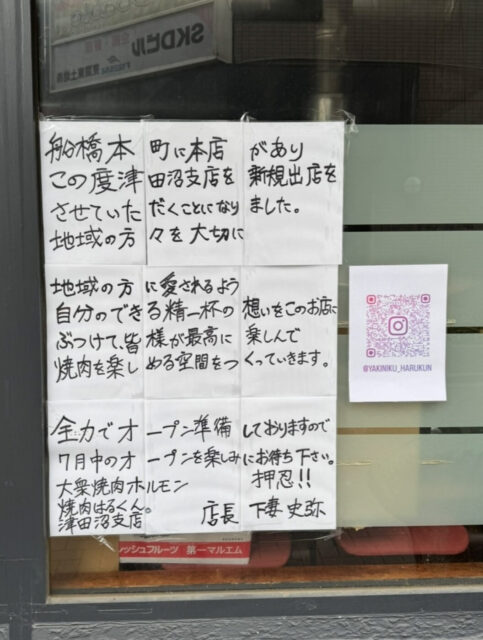 SKDビル
船橋本町に本店があり
この度津田沼支店を新規出店を
させていただくことになりました。
地域の方々を大切に
地域の方に愛されるよう
自分のできる精一杯の想いをこのお店に
ぶつけて、皆様が最高に楽しんで
焼肉を楽しめる空間をつくっていきます。
@YAKINIKU_HARUKUN
全力でオープン準備しておりますので
7月中のオープンを楽しみにお待ち下さい。
大衆焼肉ホルモン 押忍!!
焼肉はるくん。
津田沼支店 店長 下妻 史弥
レッシュフルーツ 第一マルエム